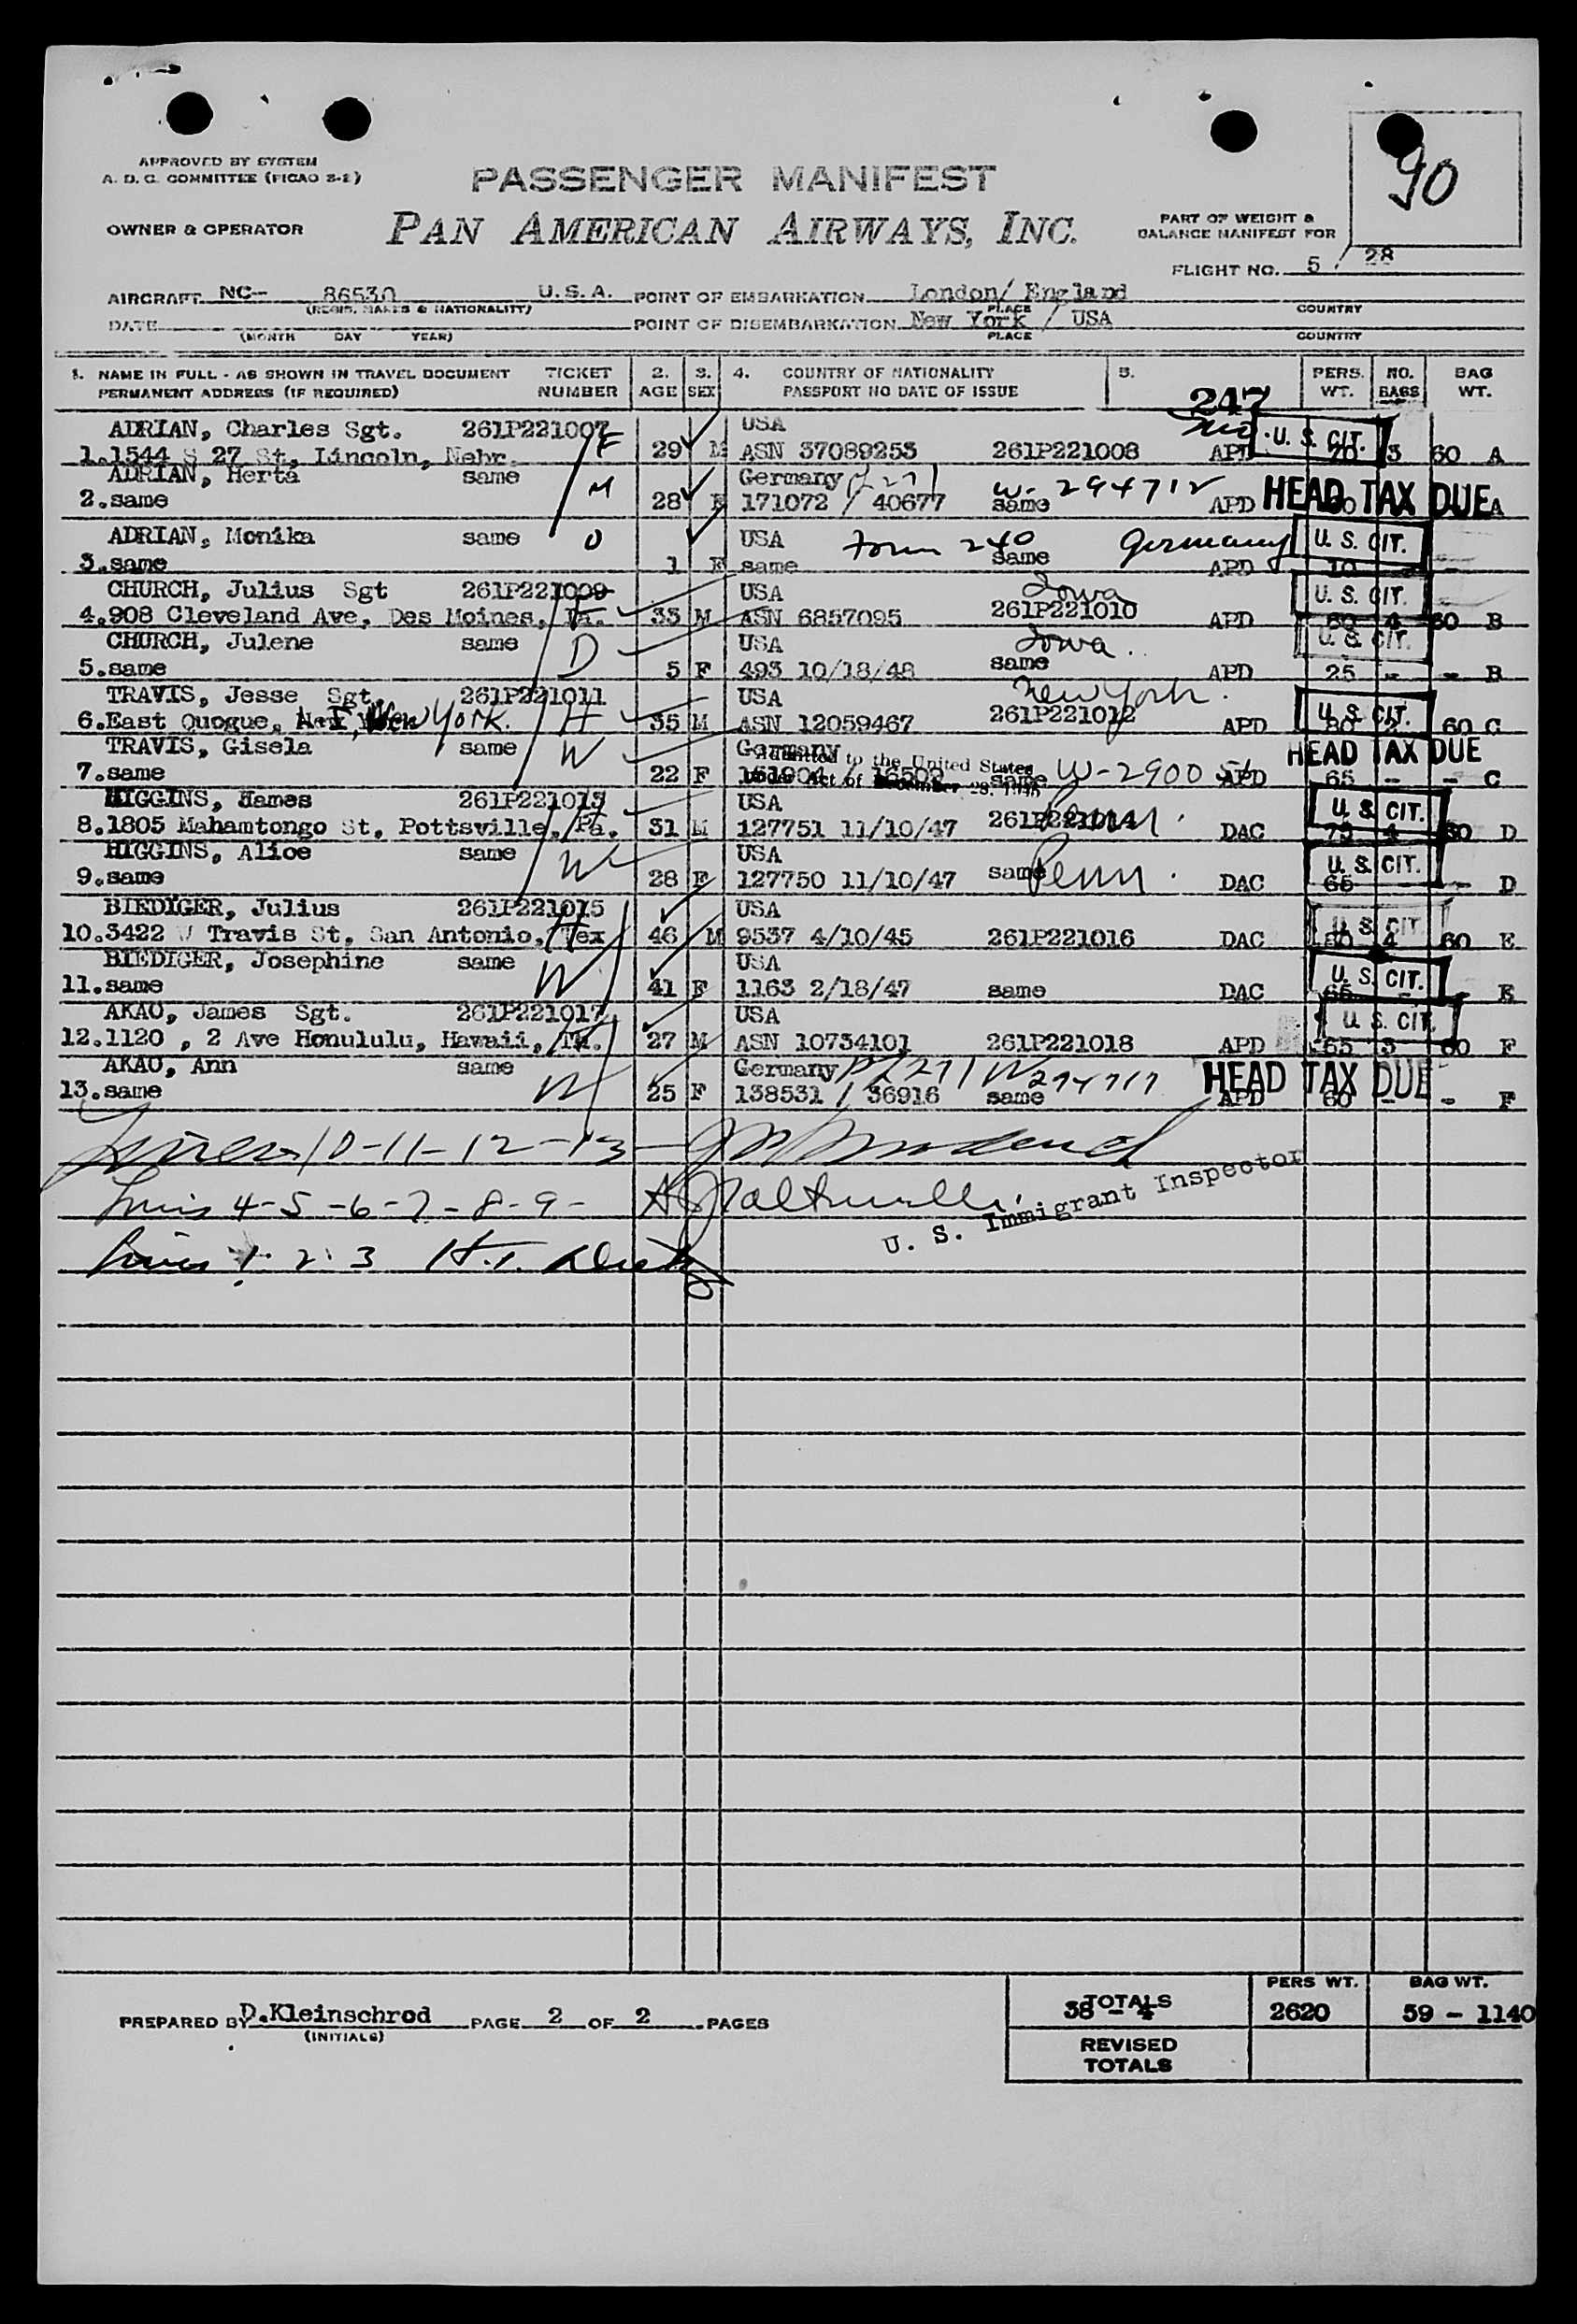 90
APPROVED BY SYSTEM
A. D. C. COMMITTEE (FICAO S-2)
PASSENGER MANIFEST
OWNER & OPERATOR
PAN AMERICAN AIRWAYS, INC.
PART OF WEIGHT &
BALANCE MANIFEST FOR
FLIGHT NO. 5 / 28
AIRCRAFT NC- 86530 U.S.A. POINT OF EMBARKATION London/ England
(REGIS. MARKS & NATIONALITY) PLACE COUNTRY
DATE POINT OF DISEMBARKATION New York / USA
(MONTH DAY YEAR) PLACE COUNTRY
1. NAME IN FULL - AS SHOWN IN TRAVEL DOCUMENT TICKET 2. 3. 4. COUNTRY OF NATIONALITY 5. PERS. NO. BAG
PERMANENT ADDRESS (IF REQUIRED) NUMBER AGE SEX PASSPORT NO DATE OF ISSUE WT. BAGS WT.
247
ADRIAN, Charles Sgt. 261P221007 USA U. S. CIT.
1.1544 S 27 St, Lincoln, Nebr. 29 M ASN 37089253 261P221008 APD 70 3 60 A
ADRIAN, Herta same M Germany W-294712 HEAD TAX DUE
2.same 28 F 171072 / 40677 same APD A
ADRIAN, Monika same USA Form 240 Germany U. S. CIT.
3.same 1 F same same APD 10 -
CHURCH, Julius Sgt 261P221009 USA Iowa U. S. CIT.
4.908 Cleveland Ave, Des Moines, 33 M ASN 6857095 261P221010 APD 80 4 60 B
CHURCH, Julene same D USA Iowa. U. S. CIT.
5.same 5 F 493 10/18/48 same APD 25 - - B
TRAVIS, Jesse Sgt. 261P221011 USA New York. U. S. CIT.
6.East Quogue, New York. H 35 M ASN 12059467 261P221012 APD 80 2 60 C
TRAVIS, Gisela same W Germany Admitted to the United States HEAD TAX DUE
7.same 22 F under Act of December 28, 1945 same W-2900 APD 65 - - C
HIGGINS, James 261P221013 USA Penn. U. S. CIT.
8.1805 Mahamtongo St, Pottsville, Pa. 31 M 127751 11/10/47 261P221014 DAC 75 4 60 D
HIGGINS, Alice same W USA Penn. U. S. CIT.
9.same 28 F 127750 11/10/47 same DAC 65 - D
BIEDIGER, Julius 261P221015 USA U. S. CIT
10.3422 W Travis St, San Antonio, Tex 46 M 9537 4/10/45 261P221016 DAC 80 4 60 E
BIEDIGER, Josephine same W USA U. S. CIT.
11.same 41 F 1163 2/18/47 same DAC 65 - E
AKAO, James Sgt. 261P221017 USA U. S. CIT.
12.1120 , 2 Ave Honululu, Hawaii, TH. 27 M ASN 10734101 261P221018 APD 65 3 60 F
AKAO, Ann same W Germany W294717 HEAD TAX DUE
13.same 25 F 138531 / 36916 same APD 60 - - F
Lines 10-11-12-13-
Lines 4-5-6-7-8-9-
U. S. Immigrant Inspector
Lines 1 2 3 H.T.
PERS WT. BAG WT.
TOTALS 38 - 4 2620 59 - 1140
PREPARED BY D.Kleinschrod PAGE 2 OF 2 PAGES
(INITIALS)
REVISED
TOTALS